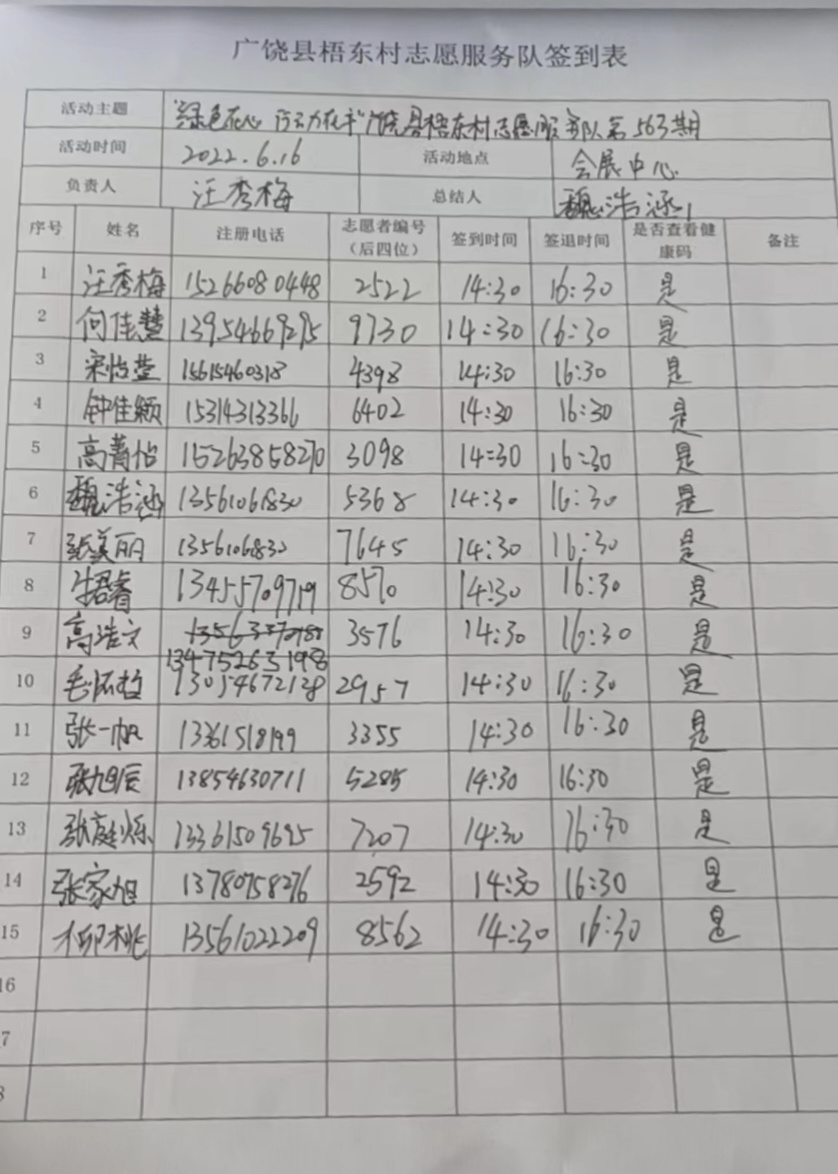 广饶县梧东村志愿服务队签到表
活动主题 "绿色在心 行动在手"广饶县梧东村志愿服务队第563期
活动时间 2022.6.16 活动地点 会展中心
负责人 汪秀梅 总结人 魏浩涵
序号 姓名 注册电话 志愿者编号（后四位） 签到时间 签退时间 是否查看健康码 备注
1 汪秀梅 15266080448 2522 14:30 16:30 是
2 何佳慧 13954669295 9730 14:30 16:30 是
3 宋怡萱 4398 14:30 16:30 是
4 钟佳颖 15314313366 6402 14:30 16:30 是
5 高菁怡 15263858270 3098 14:30 16:30 是
6 魏浩涵 13561061830 5368 14:30 16:30 是
7 张美丽 7645 14:30 16:30 是
8 牛君睿 13455709719 8570 14:30 16:30 是
9 高浩文 13475263198 3576 14:30 16:30 是
10 13054672128 2957 14:30 16:30 是
11 张一帆 13361518199 3355 14:30 16:30 是
12 张旭辰 13854630711 5285 14:30 16:30 是
13 张庭烁 13361509695 7207 14:30 16:30 是
14 张家旭 13780758276 2592 14:30 16:30 是
15 柳桃 13561022209 8562 14:30 16:30 是
16
7
8